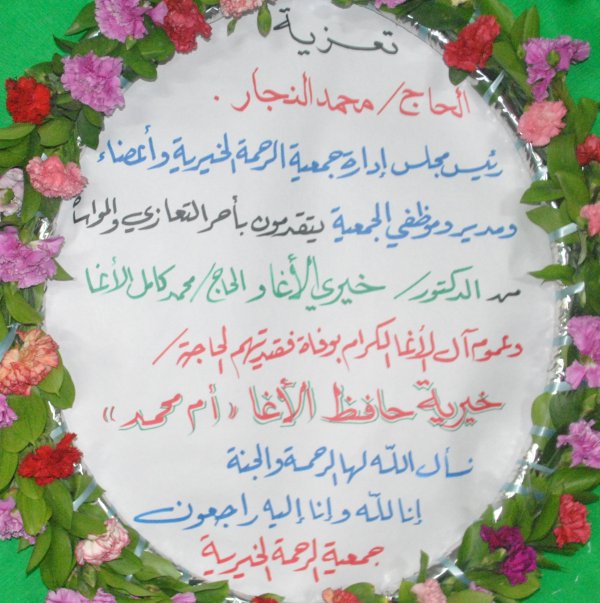 تعزية
الحاج/ محمد النجار.
رئيس مجلس إدارة جمعية الرحمة الخيرية وأعضاء
ومدير وموظفي الجمعية يتقدمون بأحر التعازي والمواساة
من الدكتور/ خيري الأغا و الحاج/ محمد كامل الأغا
وعموم آل الأغا الكرام بوفاة فقيدتهم الحاجة/
خيرية حافظ الأغا "أم محمد"
نسأل الله لها الرحمة والجنة
إنا لله وإنا إليه راجعون
جمعية الرحمة الخيرية